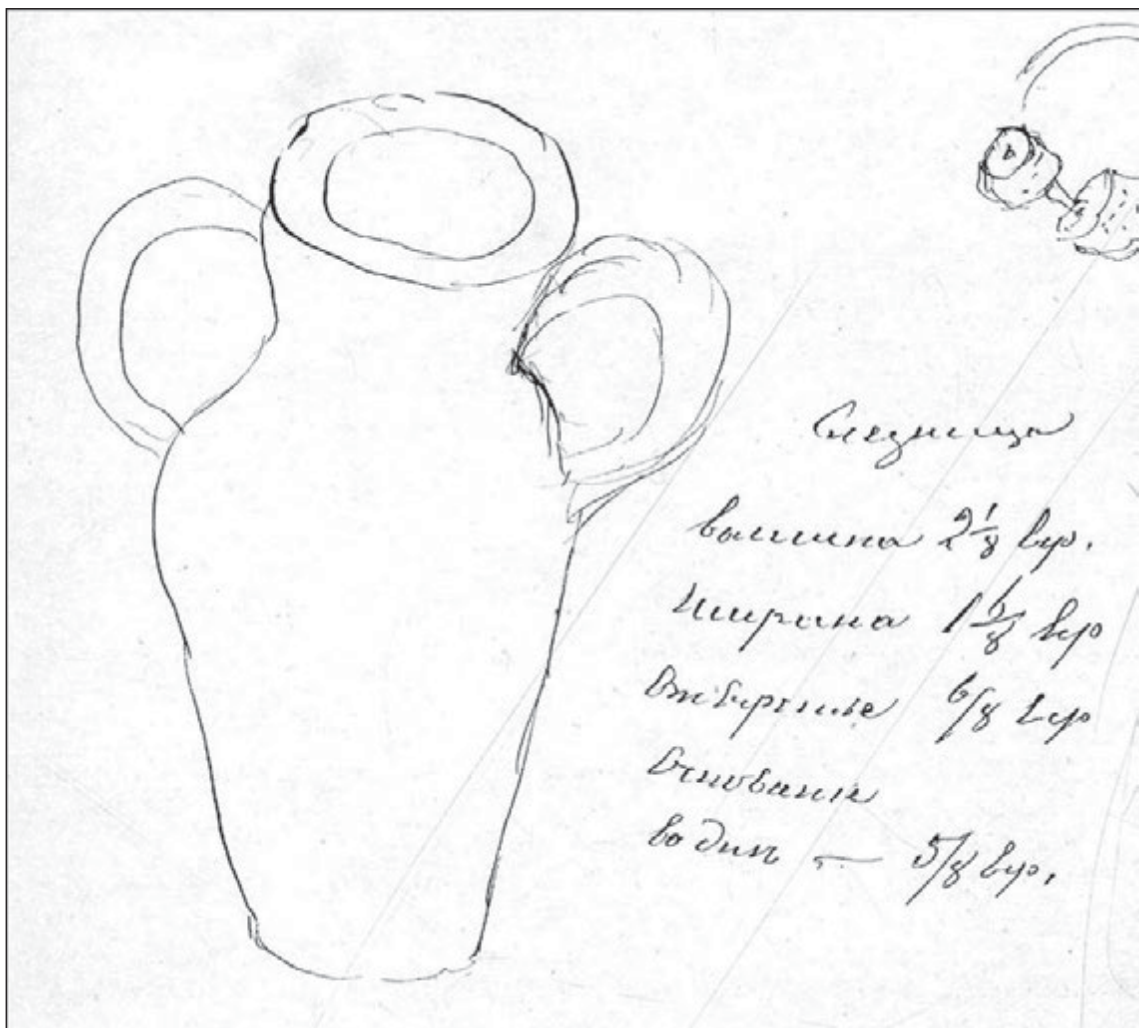 Слезница
вышина 2 1/8 вер.
ширина 1 6/8 вер
Отверстие 6/8 вер
Основание
— 5/8 вер.